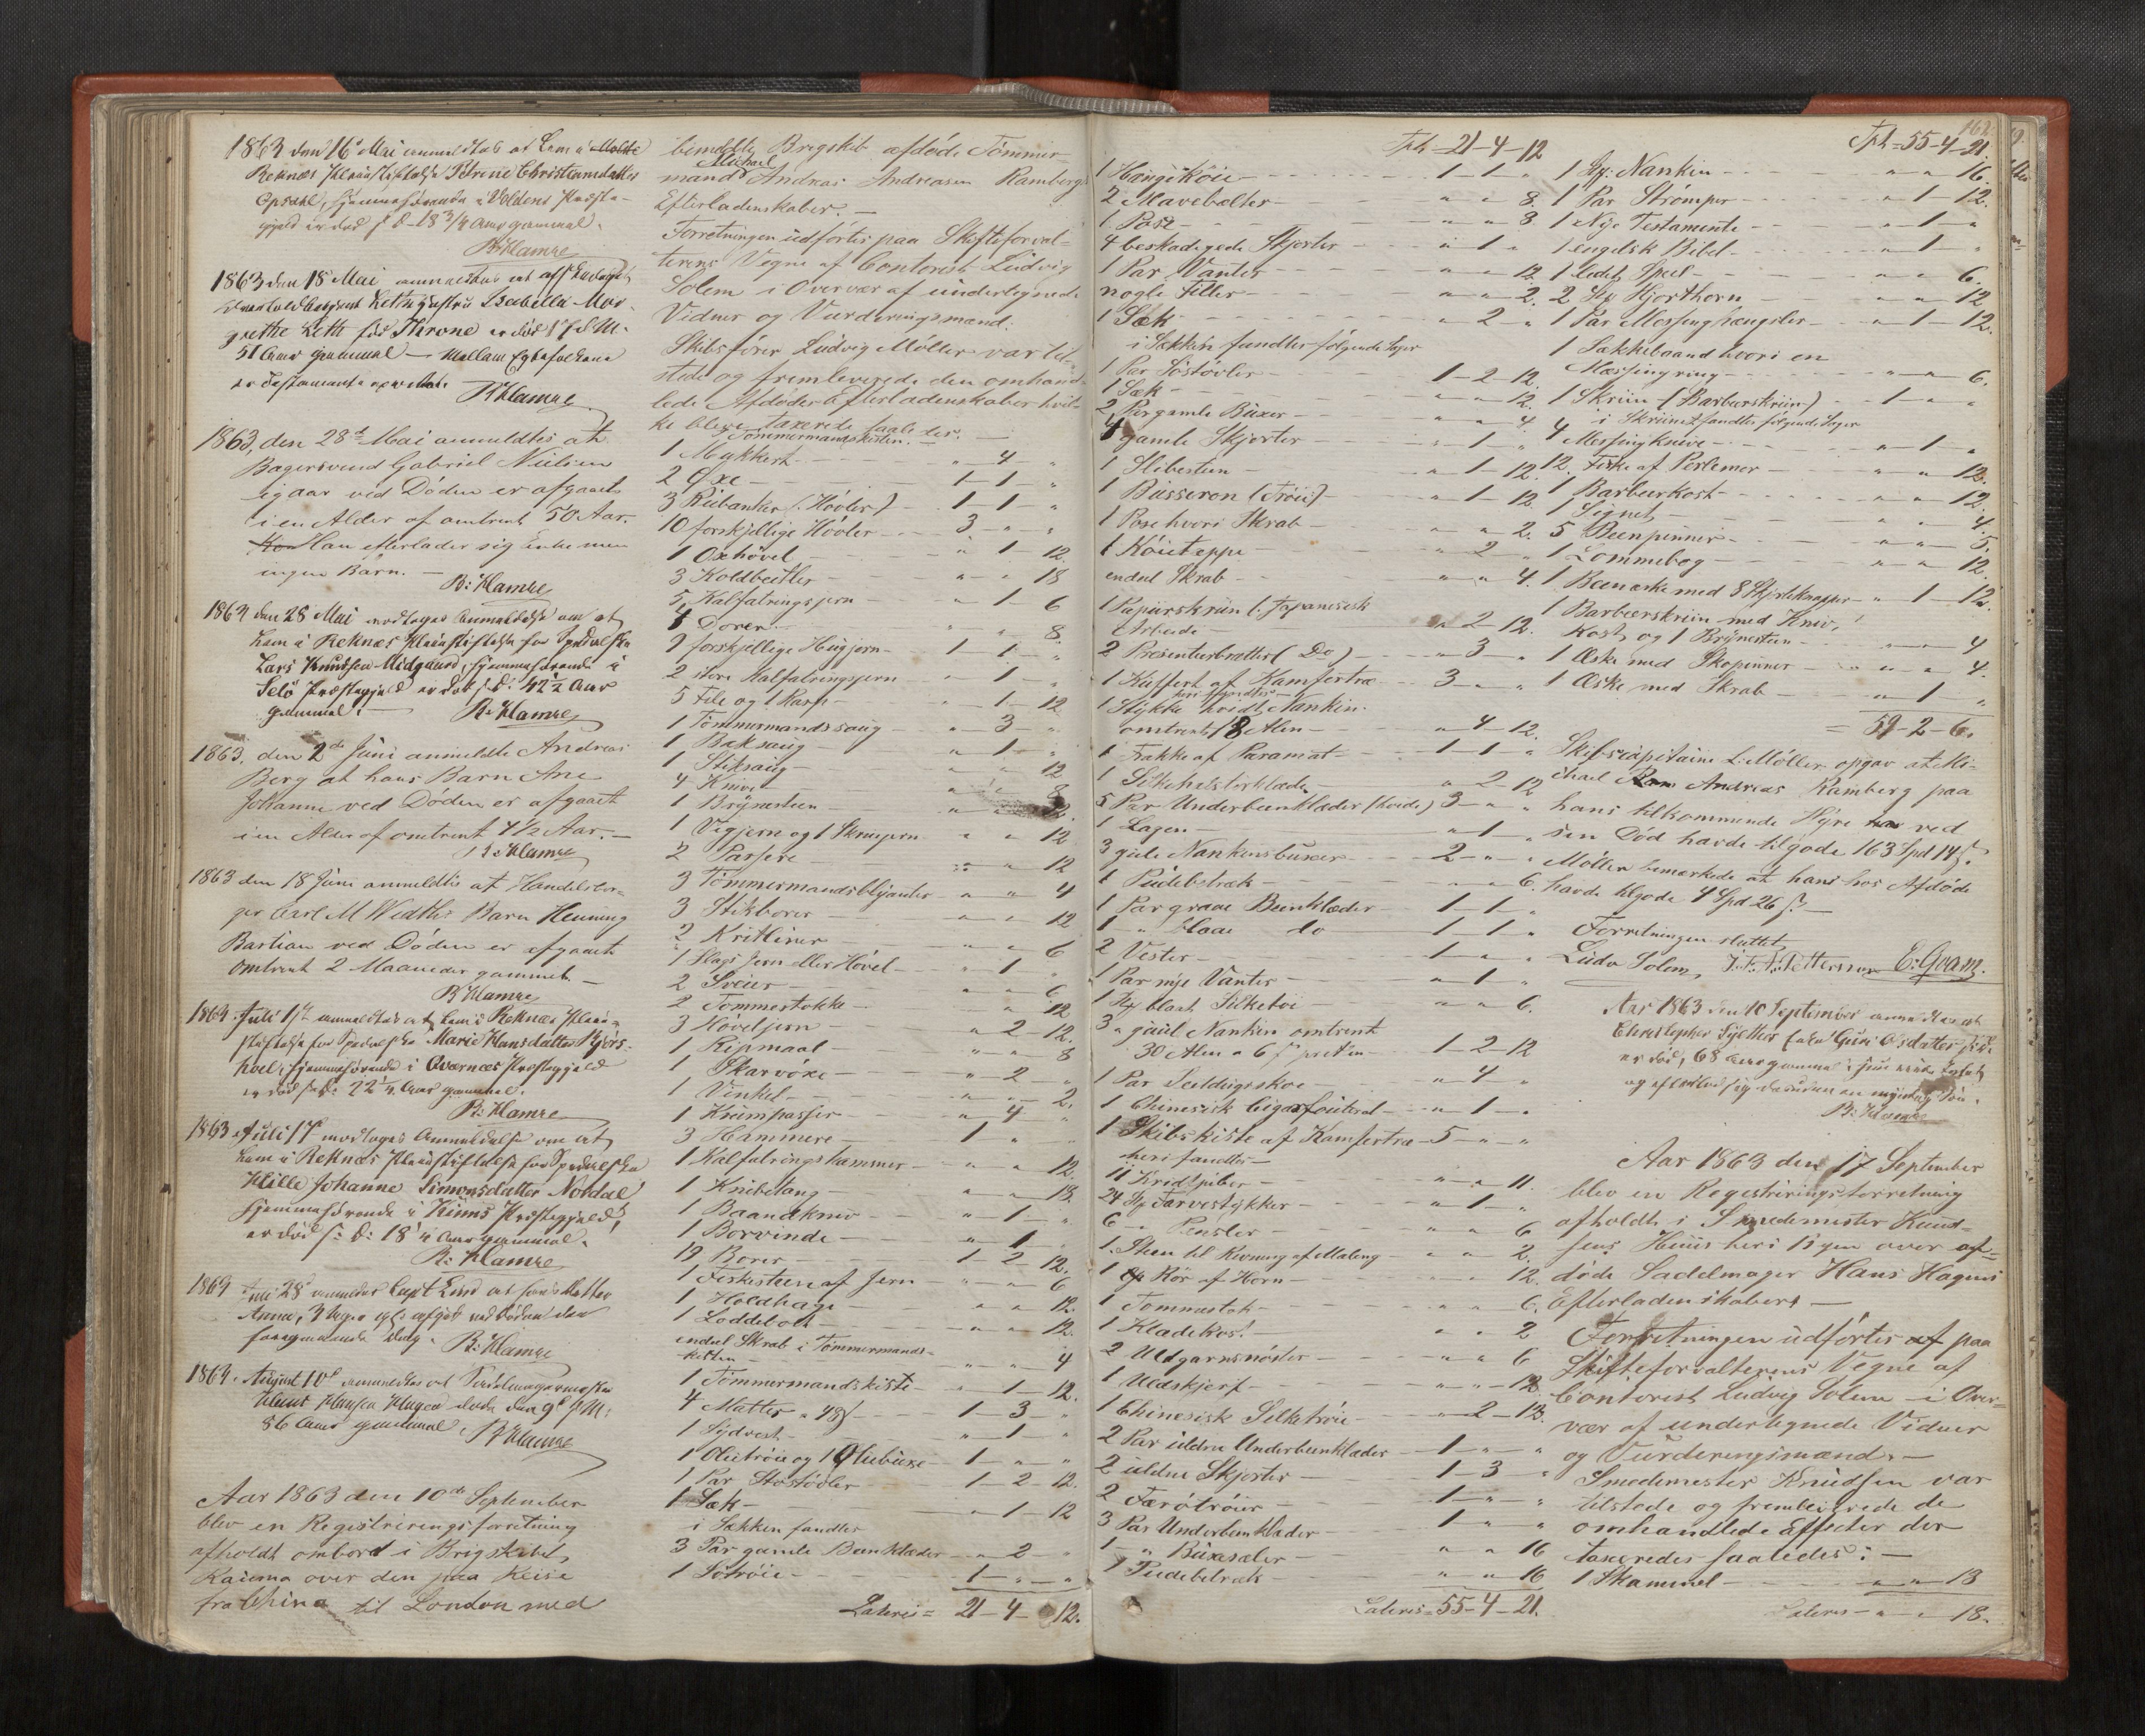 1863 den 16 Mai anmeldtes at Lem i
Reknæs Pleiestiftelse Petrine Christiansdatter
Opsahl, hjemmehörende i Voldens Præste-
gjeld er död 18 3/4 Aar gammel.
R: Klamre
1863 den 18 Mai anmeldtes at
Isabella Mar-
grethe Leth föd Throne er död 17 d. M.
51 Aar gammel —
er Testamente oprettet.
R Klamre
1863, den 28de Mai anmeldtes at
Bagersvend Gabriel Nielsen
igaar ved Döden er afgaaet
i en Alder af omtrent 50 Aar.
Han efterlader sig Enke men
ingen Barn. —
R: Klamre
1863 den 28 Mai modtoges Anmeldelse om at
Lem i Reknæs Pleiestiftelse for Spedalske
Lars Knudsen Midgaard, hjemmehörende i
Selö Præstegjeld er död 42 1/2 Aar
gammel. — R: Klamre
1863. den 2den Juni anmeldte Andreas
Berg at hans Barn Ane
Johanne ved Döden er afgaaet
i en Alder af omtrent 4 1/2 Aar. —
R: Klamre
1863 den 18 Juni anmeldtes at Handelsbor-
ger Carl M Wedths Barn Henning
Bastian ved Döden er afgaaet
omtrent 2 Maaneder gammel. —
R Klamre
1863. Juli 1ste anmeldtes at Lem i Reknæs Pleie-
stiftelse for Spedalske Marie Hansdatter
hjemmehörende i Qværnæs Præstegjeld
er död 22 1/4 Aar gammel.
R: Klamre
1863 Juli 17 modtoges Anmeldelse om at
Lem i Reknæs Pleiestiftelse for Spedalske
Hille Johanne Simonsdatter Nordal
hjemmehörende i Kinns Præstegjeld,
er död 18 1/4 Aar gammel.
R: Klamre
1863 28 anmeldte Capt at hans Datter
Anna, 3 Uger
foregaaende Dag. R: Klamre
1863. August 10de anmeldtes at Sadelmagermester
Hans Hansen Hagen döde den 9de d. M.
86 Aar gammel R Klamre
Aar 1863 den 10de September
blev en Registreringsforretning
afholdt ombord i Brigskibet
Rauma over den paa Reise
fra China til London med
bemeldte Brigskib afdöde Tömmer-
Michael
mand Andreas Andreasen Rambergs
Efterladenskaber. —
Forretningen udförtes paa Skifteforval-
terens Vegne af Contorist Ludvig
Solem i Overvær af undertegnede
Vidner og Vurderingsmænd.
Skibsförer Ludvig Möller var til-
stede og fremleverede den omhand-
lede Afdödes Efterladenskaber hvil-
ke bleve taxerede saaledes. —
Tömmermandskisten. —
1 Mukkert — " 4 "
2 Öxe — 1 – 1 – "
3 Rubanker (Hövler) — 1 – 1 – "
10 forskjellige Hövler — 3 – " – "
1 Oxhövel — " – 1 – 12.
3 Koldbeitler — " – " – 18
5 Kalfatringsjern — " – 1 – 6
1 Dorer — " – " – 8.
9 forskjellige Hugjern — 1 – 1 – "
2 store Kalfatringsjern — " – 1 – "
5 File og 1 Rasp — " – 1 – 12
1 Tömmermandssaug — " – 3 – "
1 Baksaug — " – 1 – "
1 Stiksaug — " – " – 12
4 Knive — " – " – 8
1 Brÿnesteen — " – " – 12.
1 Vegjern og 1 Skruejern — " – " – 12
2 Passere — " – " – 12
3 Tömmermandsblÿanter — " – " – 4
3 Stikborer — " – " – 12
2 Kritliner — " – " – 6
1 Slags Jern eller Hövel — " – 1 – "
2 Sveiv — " – " – 6
2 Tommestokke — " – " – 12
3 Höveljern — " – 2 – 12.
1 Ripmaal — " – " – 8
1 Skarvöxe — " – 2 – "
1 Vinkel — " – " – 2.
1 Krumpasser — " – 4 – "
3 Hammere — 1 – " – "
1 Kalfatringshammer — " – " – 12.
1 Knibetang — " – " – 18.
1 Baandkniv — " – 1 – "
1 Borvinde — " – 1 – "
19 Borer — 1 – 2 – 12.
1 Fiskesteen af Jern — " – " – 6
1 Holdhage — " – " – 12.
1 Loddebolt — " – " – 12.
endeel Skrab i Tömmermands-
kisten — " – " – 4
1 Tömmermandskiste — " – 1 – 12.
4 Matter — 1 – 3 – "
1 Sÿdvest — " – 1 – "
1 Olietröie og 1 Oliebuxe — 1 – " – "
1 Par Söstövler — 1 – 2 – 12.
1 Sæk — " – 1 – 12
i Sækken fandtes
3 Par gamle Beenklæder — " – 2 – "
1 Sötröie — 1 – " – "
Lateris = 21 – 4 – 12.
Tpt – 21 – 4 – 12
1 Hængeköie — 1 – 1 – "
2 Mavebælter — " – " – 8.
1 Pose — " – " – 8.
4 beskadigede Skjorter — " – 1 – "
1 Par Vanter — " – " – 12
nogle Filler — " – " – 2.
1 Sæk — " – 2 – "
i Sækken fandtes fölgende Sager
1 Par Söstövler — 1 – 2 – 12.
1 Sæk — " – " – 12.
2 Par gamle Buxer — " – " – 4.
4 gamle Skjorter — " – 1 – "
1 Slibesteen — " – 1 – 12
1 Busseron (Tröie) — " – 1 – 12
1 Pose hvori Skrab — " – " – 2.
1 Köieteppe — " – 2 – "
endeel Skrab — " – " – 4.
1 Papiirskriin (: Japanesisk
Arbeide — " – 2 – 12.
2 Presenterbrætter (Do) — " – 3 – "
1 Kuffert af Kamfertræ — 3 – " – "
heri fandtes —
1 Stÿkke hvidt Nankin.
omtrent 18 Alen — " – 4 – 12.
1 Frakke af Paramat — 1 – 1 – "
1 Silkehalstörklæde — " – 2 – 12
5 Par Underbeenklæder (hvide) 3 – " – "
1 Lagen — " – 1 – "
3 gule Nankensbuxer — 2 – " – "
1 Pudebetræk — " – " – 6.
1 Par graae Beenklæder — 1 – 1 – "
1 " blaae do — 1 – 1 – "
2 Vester — 1 – " – "
1 Par nÿe Vanter — " – 1 – "
1 Stk blaat Silketöi — " – " – 6.
3 " guul Nankin omtrent
30 Alen a 6 pr Alen — 1 – 2 – 12
1 Par Seildugskoe — " – 4 – "
1 Chinesisk Cigarfouteral — " – 1 – "
1 Skibskiste af Kamfertræ – 5 – " – "
heri fandtes —
11 Kridtpiber — " – " – 11.
24 Stk Farvestÿkker — " – 1 – "
6 " Pensler — " – " – 6
1. Steen til Rivning af Maling — " – " – 2.
1 Rör af Horn — " – " – 12.
1 Tommestok — " – " – 6.
1 Klædekost — " – " – 2
2 Uldgarnsnöster — " – " – 6
1 Uldskjerf — " – " – 12.
1 Chinesisk Silketröie — " – 2 – 12.
2 Par uldne Underbeenklæder — 1 – " – "
2 uldne Skjorter — 1 – 3 – "
2 Færötröier — 1 – " – "
3 Par Underbeenklæder — 1 – " – "
1 – " Buxesæler — " – " – 16
7 Pudebetræk — " – " – 16
Lateris = 55 – 4 – 21.
162.
Tpt = 55 – 4 – 21
1 Stk: Nankin — " – " – 16.
1 Par Strömper — " – 1 – 12.
1 Nÿe Testamente — " – 1 – "
1 engelsk Bibel — " – 1 – "
1 lidet Speil — " – " – 6.
2 Stk Hjorthorn — " – " – 12
1 Par Messinghængsler — " – 1 – 12.
1 Lakkebaand hvori en
Messingring — " – " – 6.
1 Skriin (Barbeerskriin) — 1 – " – "
i Skrinet fandtes fölgende Sager
4 Messingknive — " – 1 – "
12. Fiske af Perlemor — " – " – 12.
1 Barbeerkost — " – " – 12.
1 Signet — " – " – 4.
5 Beenpinner — " – " – 5.
1 Lommebog — " – " – 12.
1 Beenæske med 8 Skjorteknapper — " – 1 – 12.
1 Barbeerskriin med Kniv,
Kost, og 1 Brÿnesteen — " – " – 4
1 Æske med Skopinner — " – " – 4.
1 Æske med Skrab — " – 1 – "
= 59 – 2 – 6.
Skibscapitain L. Möller opgav at Mi-
chael Andreas Ramberg paa
hans tilkommende Hÿre ved
sin Död havde tilgode 163 Spd 14 s.
Möller bemærkede at han hos Afdöde
havde tilgode 4 Spd 26 s. —
Forretningen sluttet
Ludv Solem, Pettersen E. Gram.
Aar 1863 den 10 September anmeldtes at
Christopher
er död, 68 Aar gammel
og efterlod sig desuden en myndig Sön.
R: Klamre
Aar 1863 den 17 September
blev en Registreringsforretning
afholdt i Smedemester Knud-
sens Huus her i Byen over af-
döde Sadelmager Hans Hagens
Efterladenskaber —
Forretningen udförtes paa
Skifteforvalterens Vegne af
Contorist Ludvig Solem i Over-
vær af undertegnede Vidner
og Vurderingsmænd. —
Smedemester Knudsen var
tilstede og fremleverede de
omhandlede Effecter der
taxeredes saaledes: —
1 Skammel — " – " – 18
Lateris — " – " – 18.